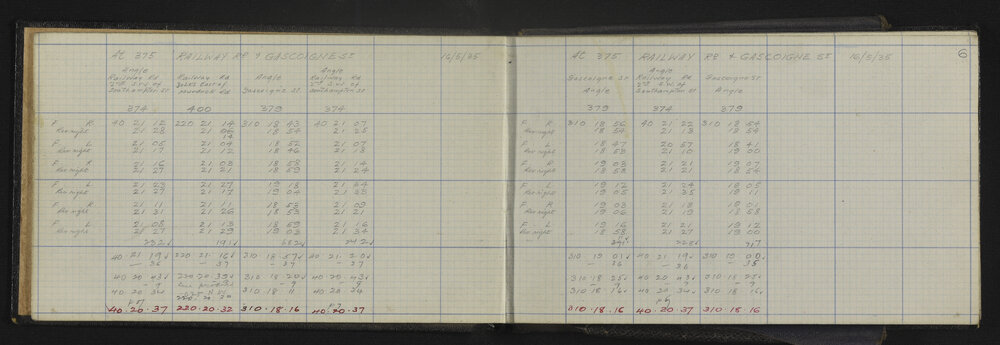 At 375 RAILWAY RD & GASCOIGNE ST 16/5/35
Angle Railway Rd Southampton St
Railway Rd East of Murdoch Rd
Angle Gascoigne St
Angle Railway Rd Southampton St
374 400 379 374
F R 40 21 12 220 21 14 310 18 43 40 21 07
Rev right 21 28 21 06 18 54 21 25
14
F L 21 05 21 04 18 52 21 07
Rev right 21 17 21 12 18 46 21 18
F R 21 16 21 03 18 58 21 14
Rev right 21 27 21 21 18 59 21 24
F L 21 23 21 27 19 18 21 24
Rev right 21 27 21 17 19 04 21 29
F R 21 11 21 11 18 53 21 09
Rev right 21 31 21 26 18 53 21 21
F L 21 08 21 13 18 59 21 16
Rev right 21 27 21 29 19 03 21 34
232 191 682 242
40 21 19 220 21 16 310 18 57 40 21 20
- 36 - 37 - 37 - 37
40 20 43 220 20 39 310 18 20 40 20 43
- 9 - 9 - 9
40 20 34 310 18 11 40 20 34
40.20.37 220.20.32 310.18.16 40.20.37
6
At 375 RAILWAY RD & GASCOIGNE ST 16/5/35
Gascoigne St Angle
Angle Railway Rd 2nd S.W. of Southampton St
Gascoigne St Angle
379 374 379
F R 310 18 56 40 21 22 310 18 54
Rev right 18 54 21 13 18 54
F L 18 47 20 57 18 41
Rev right 18 53 21 10 19 00
F R 19 03 21 21 19 07
Rev right 18 58 21 21 18 54
F L 19 12 21 24 18 05
Rev right 19 05 21 35 19 11
F R 19 03 21 18 19 01
Rev right 19 06 21 19 18 58
F L 19 16 21 21 19 12
Rev right 18 58 21 27 19 00
310 19 01 40 21 19 310 19 00
- 36 - 36 - 35
310 18 25 40 20 43 310 18 25
- 9 - 9 - 9
310 18 16 40 20 34 310 18 16
310.18.16 40.20.37 310.18.16